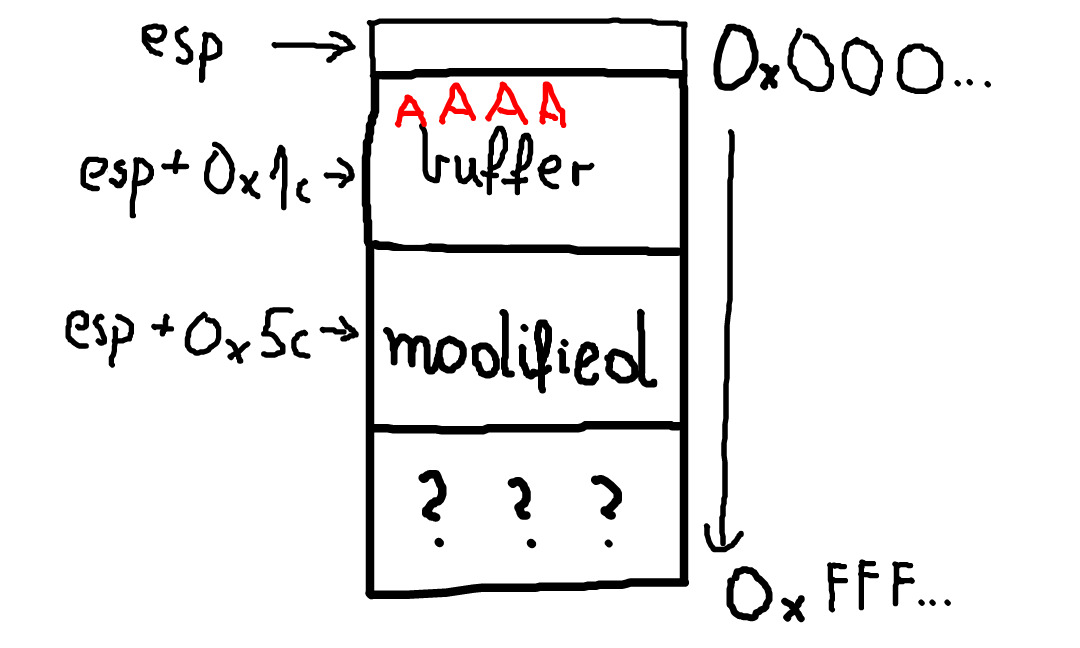 esp → 0x000...
A A A A
esp + 0x1c → buffer
esp + 0x5c → modified
? ? ?
0xFFF...